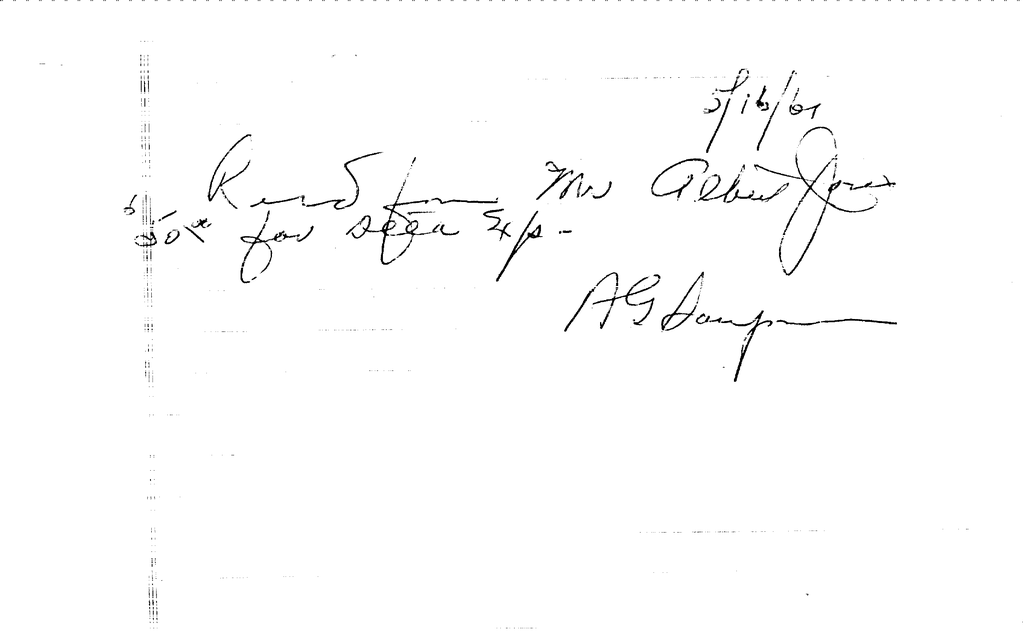 5/16/61
Recd from Mr Albert Jones
$50.00 for Exp -
A G